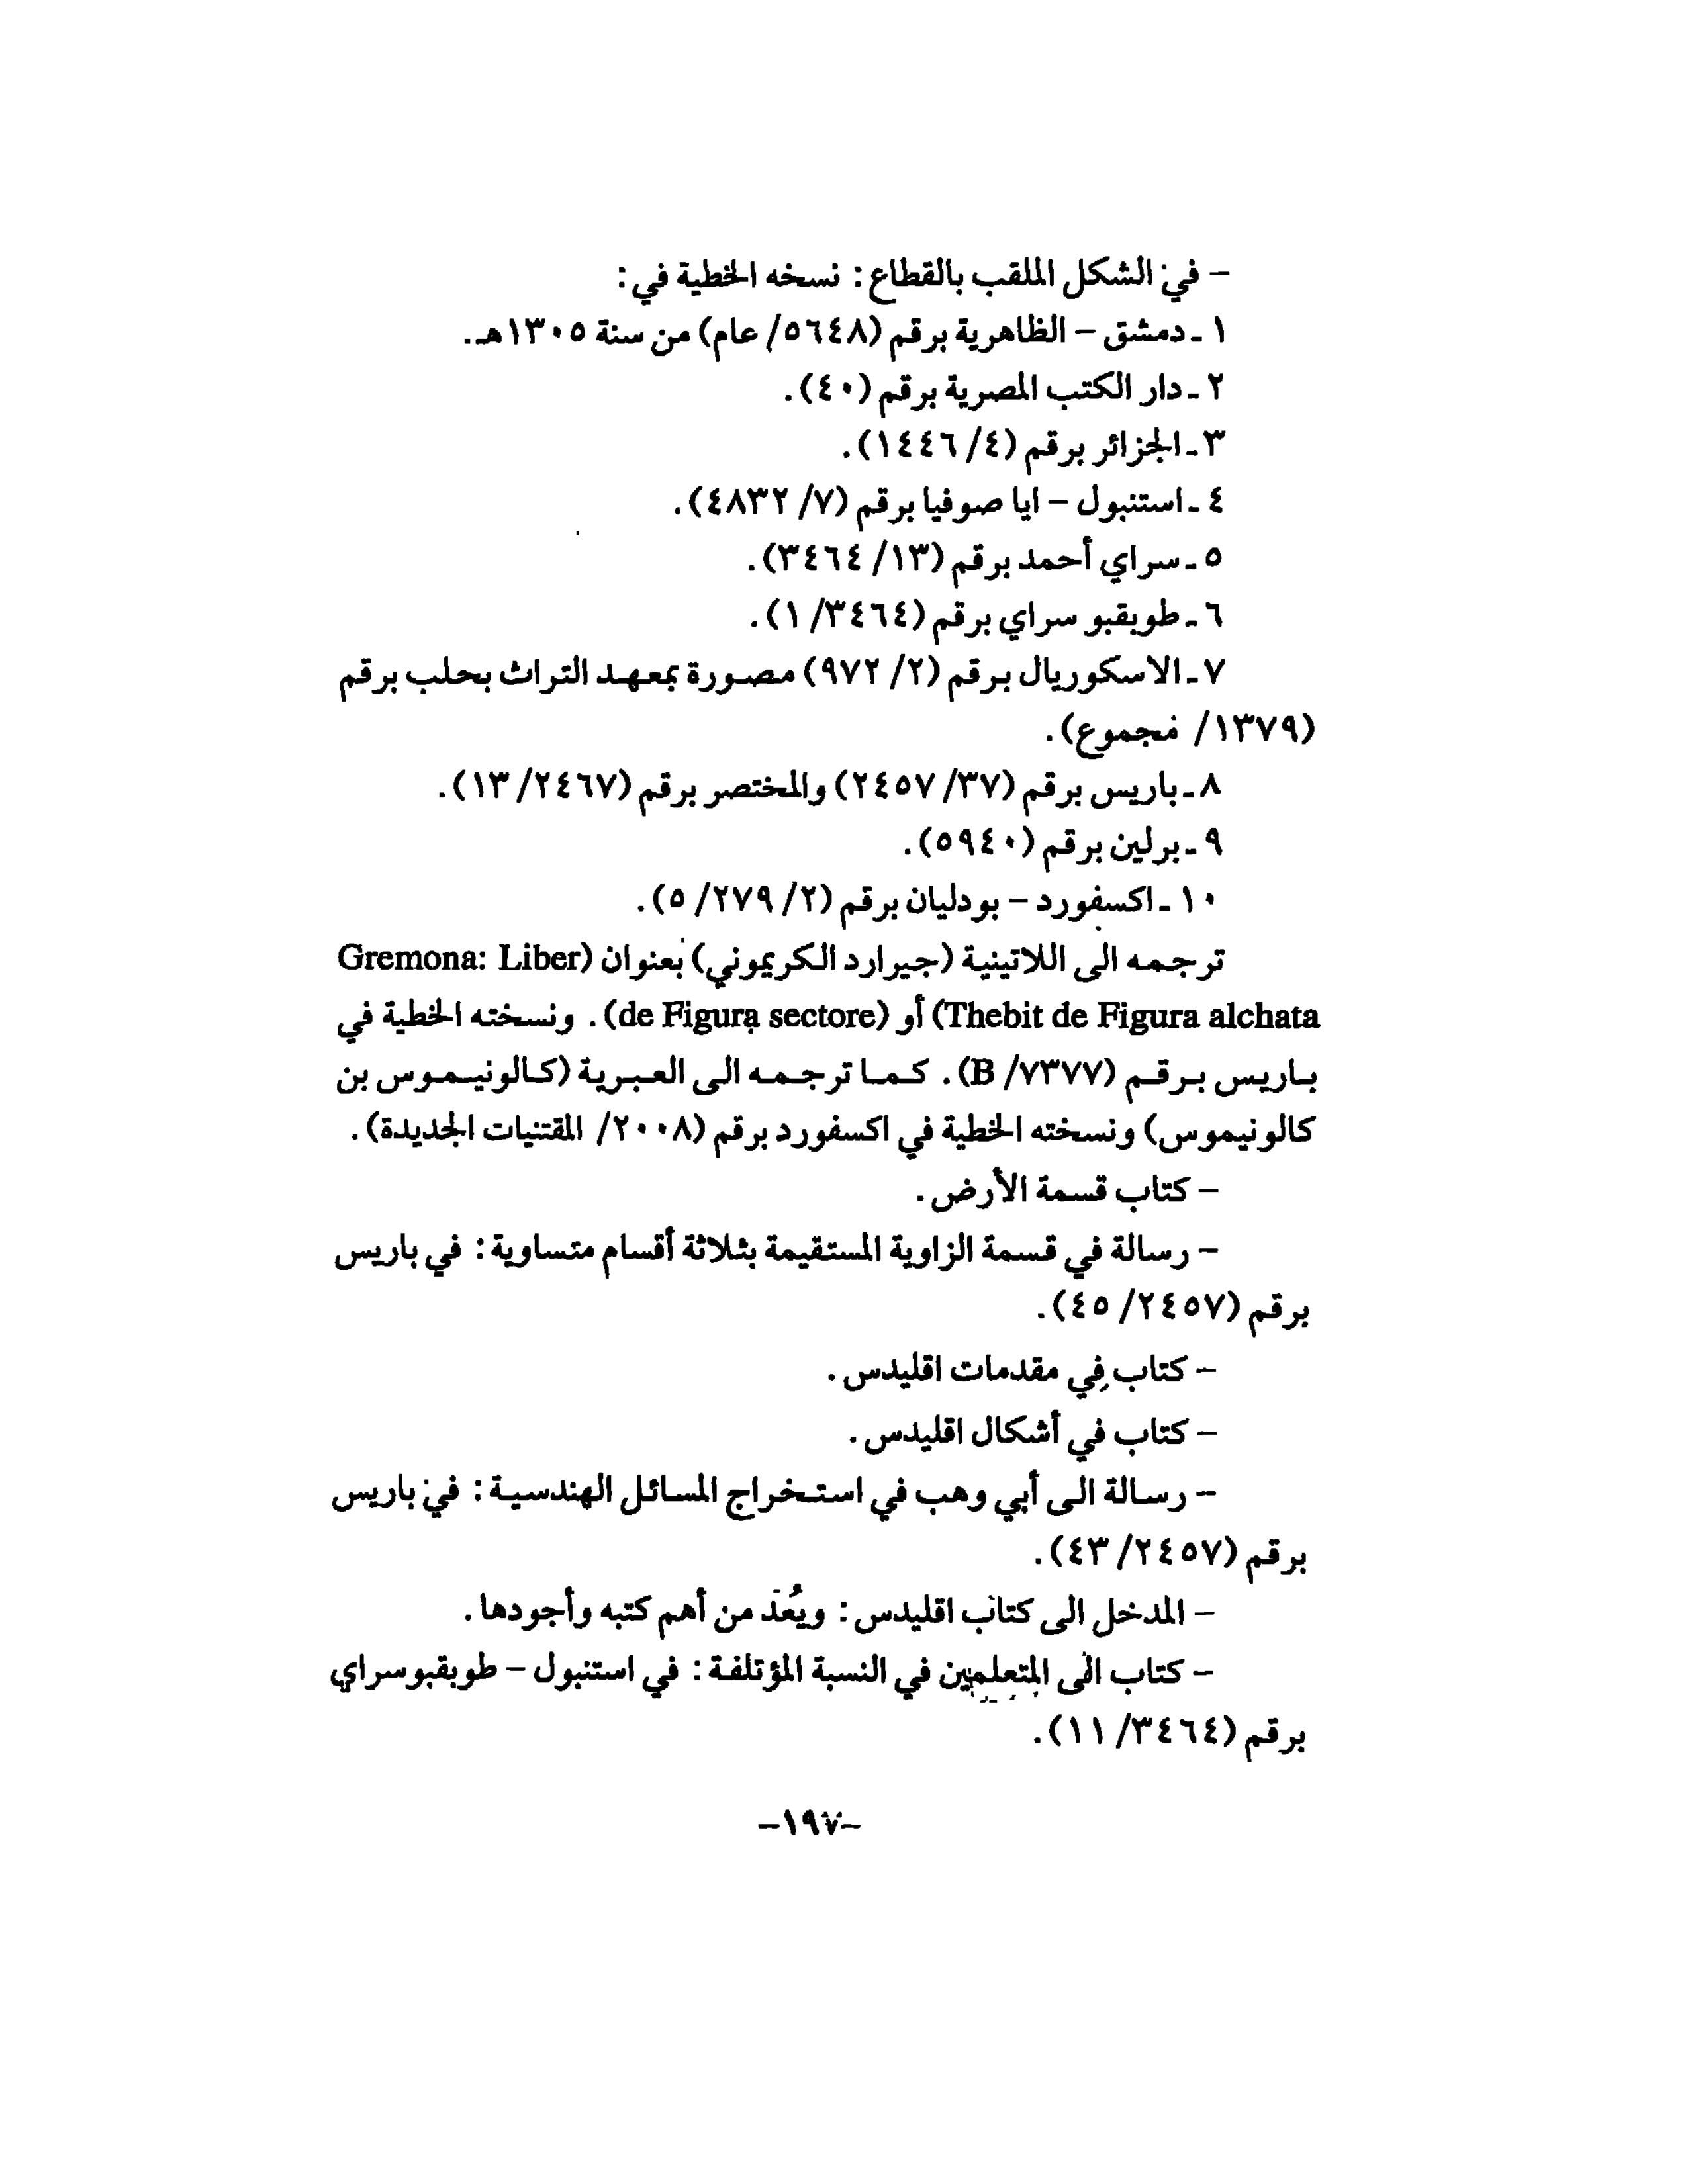 – في الشكل الملقب بالقطاع: نسخه الخطية في:
١ ـ دمشق – الظاهرية برقم (٥٦٤٨/ عام) من سنة ١٣٠٥هـ.
٢ ـ دار الكتب المصرية برقم (٤٠).
٣ ـ الجزائر برقم (٤/ ١٤٤٦).
٤ ـ استنبول – ايا صوفيا برقم (٧/ ٤٨٣٢).
٥ ـ سراي أحمد برقم (١٣/ ٣٤٦٤).
٦ ـ طوبقبو سراي برقم (٣٤٦٤/ ١).
٧ ـ الاسكوريال برقم (٢/ ٩٧٢) مصورة بمعهد التراث بحلب برقم
(١٣٧٩/ مجموع).
٨ ـ باريس برقم (٣٧/ ٢٤٥٧) والمختصر برقم (٢٤٦٧/ ١٣).
٩ ـ برلين برقم (٥٩٤٠).
١٠ ـ اكسفورد – بودليان برقم (٢/ ٢٧٩/ ٥).
ترجمه الى اللاتينية (جيرارد الكريموني) بعنوان (Gremona: Liber
Thebit de Figura alchata) أو (de Figura sectore). ونسخته الخطية في
باريس برقم (٧٣٧٧/ B). كما ترجمه الى العبرية (كالونيموس بن
كالونيموس) ونسخته الخطية في اكسفورد برقم (٢٠٠٨/ المقتنيات الجديدة).
– كتاب قسمة الأرض.
– رسالة في قسمة الزاوية المستقيمة بثلاثة أقسام متساوية: في باريس
برقم (٢٤٥٧/ ٤٥).
– كتاب في مقدمات اقليدس.
– كتاب في أشكال اقليدس.
– رسالة الى أبي وهب في استخراج المسائل الهندسية: في باريس
برقم (٢٤٥٧/ ٤٣).
– المدخل الى كتاب اقليدس: ويُعدّ من أهم كتبه وأجودها.
– كتاب الى المتعلمين في النسبة المؤتلفة: في استنبول – طوبقبوسراي
برقم (٣٤٦٤/ ١١).
–١٩٧–